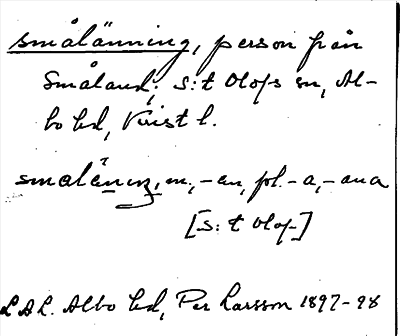 smålänning, person från
Småland; S:t Olofs sn, Al-
bo hd, Krist l.
smaläning, m., -en, pl. -a, -ana
[S:t Olof]
LAL. Albo hd, Per Larsson 1897-98